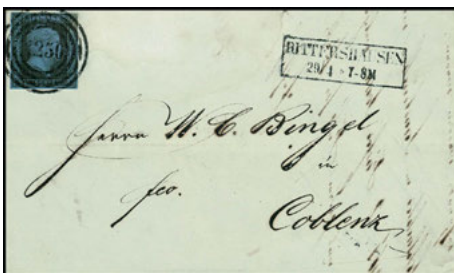 1250
RITTERSHAUSEN
29/4 * 7-8M
Herrn W. C. Bingel
in
fco.
Coblenz